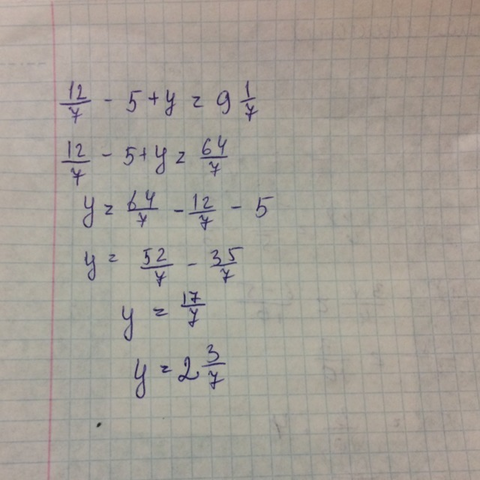 12/7 - 5 + y = 9 1/7
12/7 - 5 + y = 64/7
y = 64/7 - 12/7 - 5
y = 52/7 - 35/7
y = 17/7
y = 2 3/7